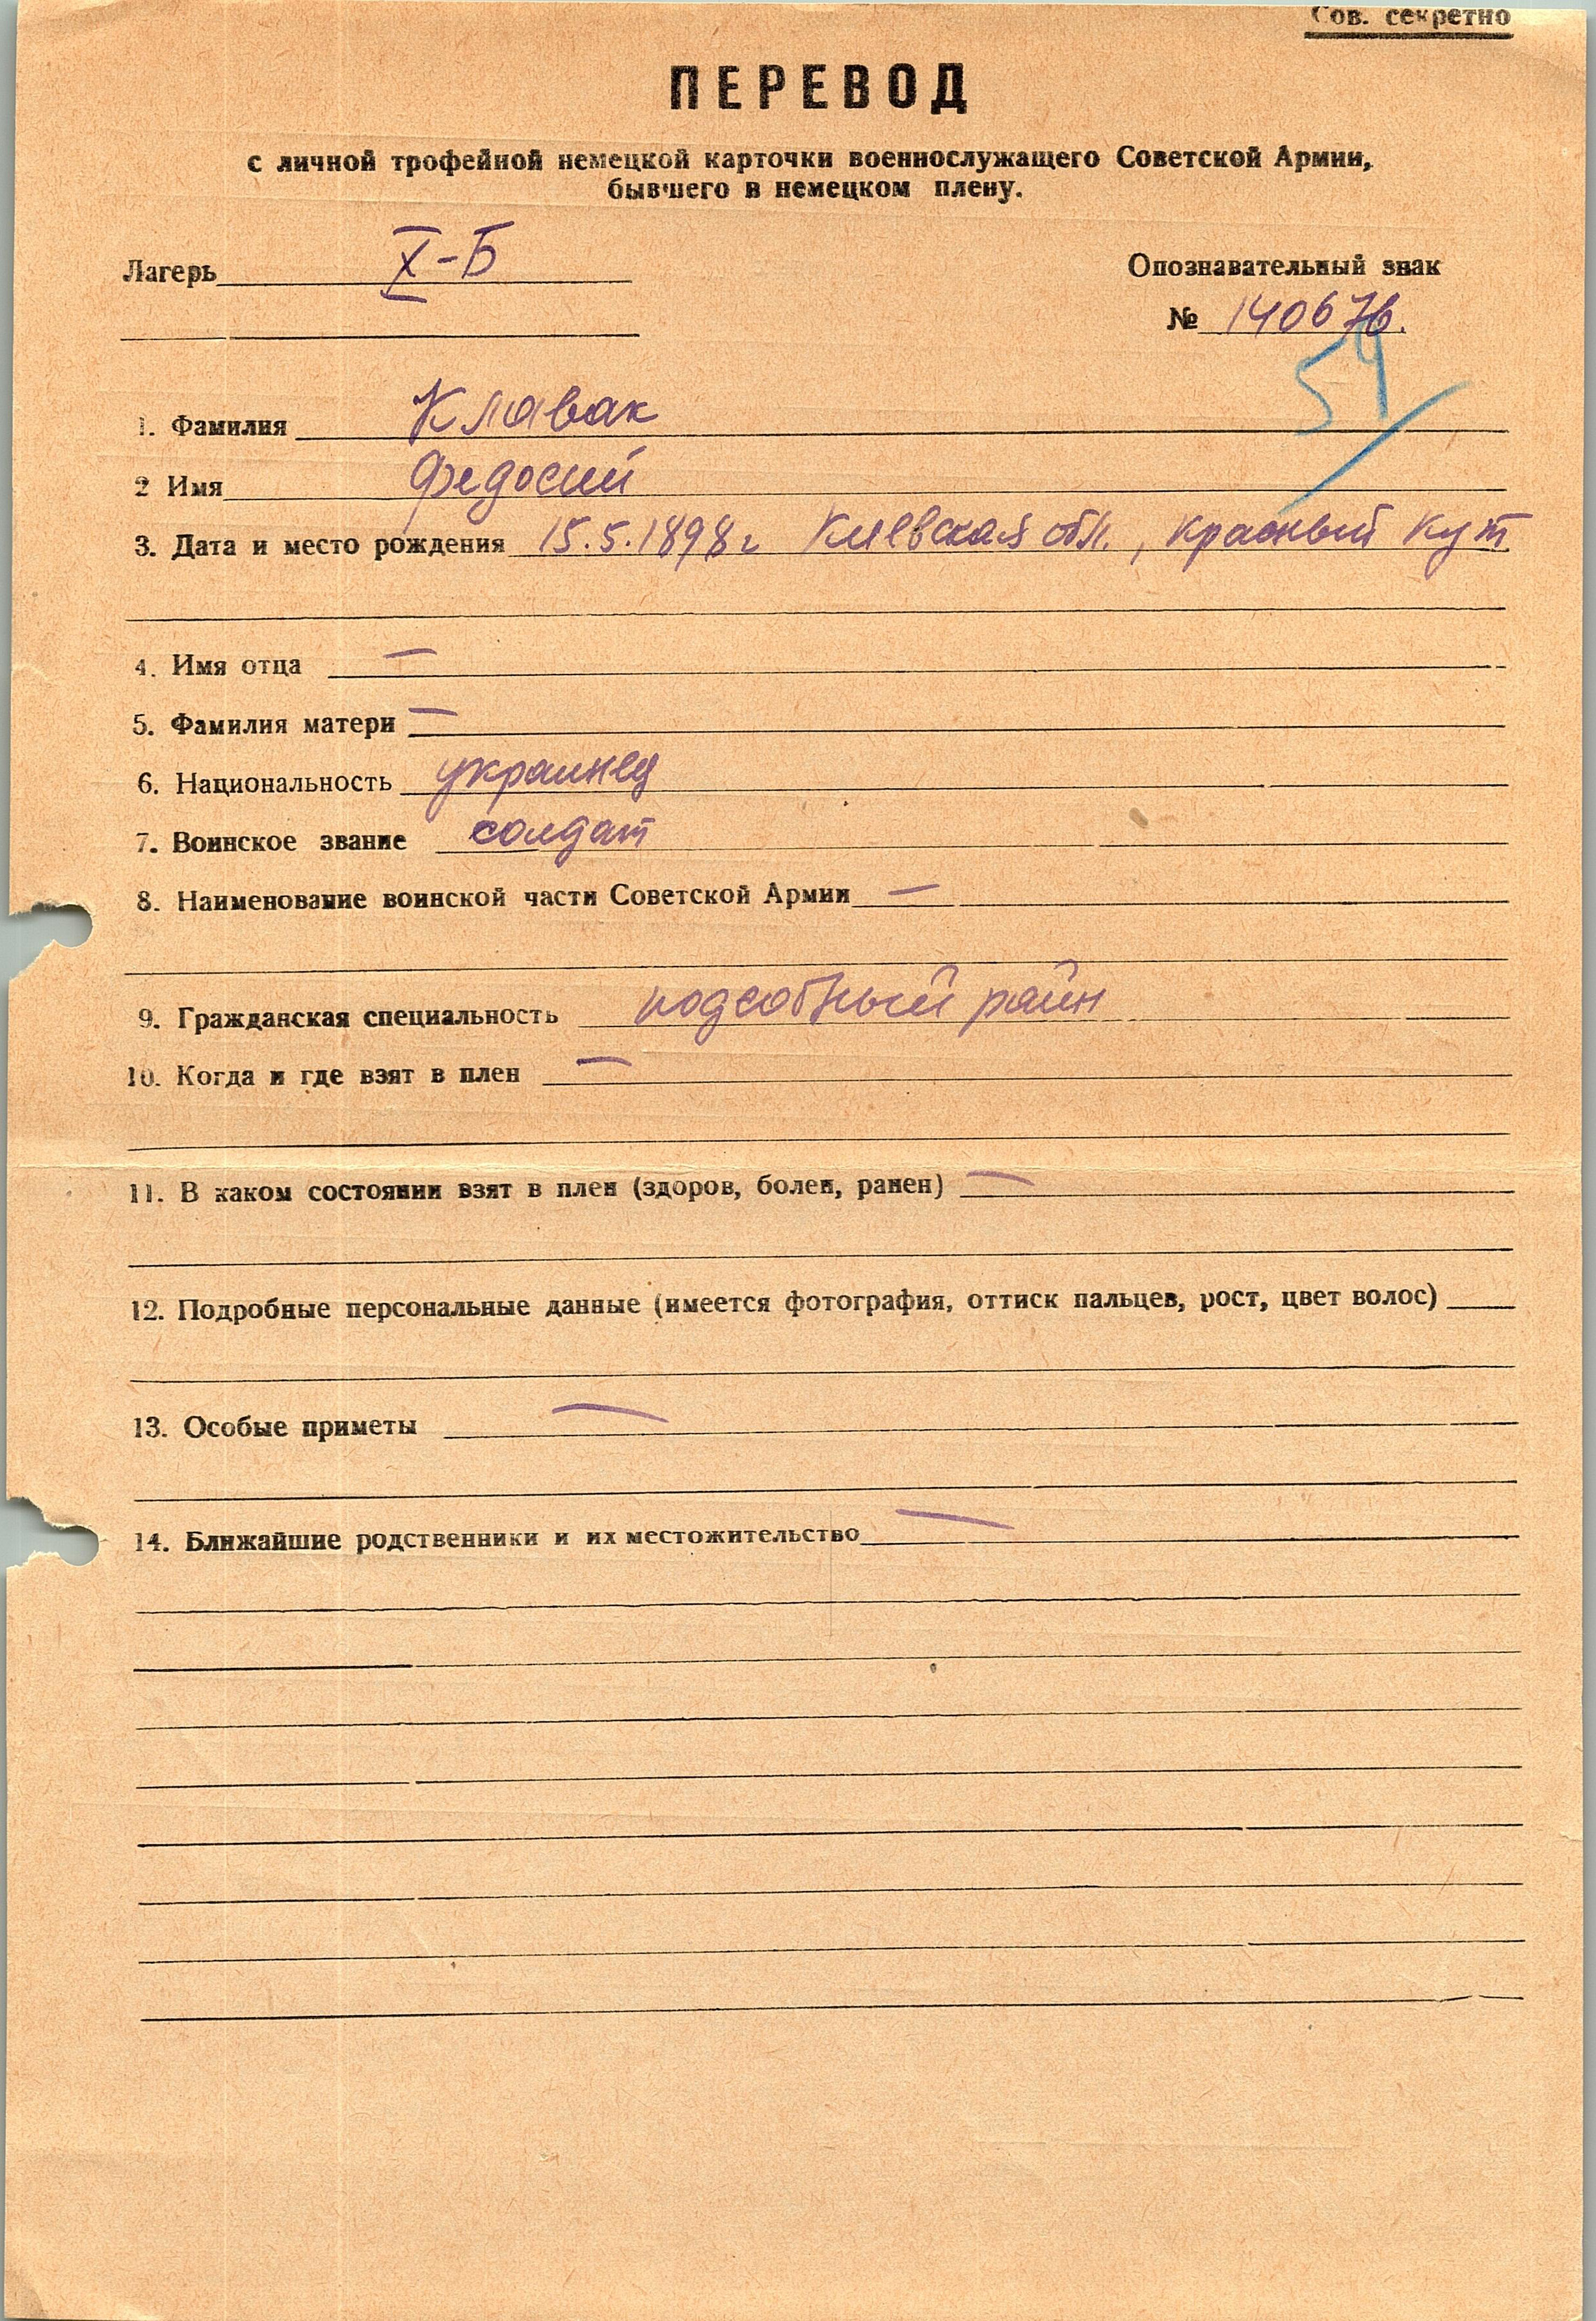 Сов. секретно
ПЕРЕВОД
с личной трофейной немецкой карточки военнослужащего Советской Армии,
бывшего в немецком плену.
Лагерь X-Б
Опознавательный знак
№ 140676.
59
1. Фамилия Клавак
2 Имя Федосий
3. Дата и место рождения 15.5.1898 г Киевская обл., Красный Кут
4. Имя отца —
5. Фамилия матери —
6. Национальность украинец
7. Воинское звание солдат
8. Наименование воинской части Советской Армии —
9. Гражданская специальность подсобный
10. Когда и где взят в плен —
11. В каком состоянии взят в плен (здоров, болен, ранен) —
12. Подробные персональные данные (имеется фотография, оттиск пальцев, рост, цвет волос)
13. Особые приметы —
14. Ближайшие родственники и их местожительство —